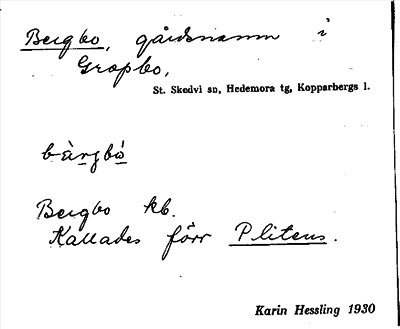 Bergbo, gårdsnamn i
Gropbo,
St. Skedvi sn, Hedemora tg, Kopparbergs l.
bàrjbò
Bergbo kb.
Kallades förr Plitens.
Karin Hessling 1930